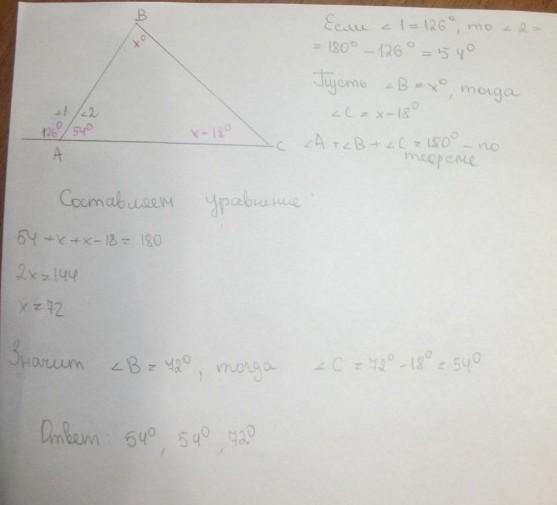 B
x°
∠1 ∠2
126° 54°
x-18°
A
C
Если ∠1=126°, то ∠2=
=180°-126°=54°
Пусть ∠B=x°, тогда
∠C=x-18°
∠A+∠B+∠C=180°-по
теореме
Составляем уравнение:
54+x+x-18=180
2x=144
x=72
Значит ∠B=72°, тогда ∠C=72°-18°=54°
Ответ: 54°, 54°, 72°